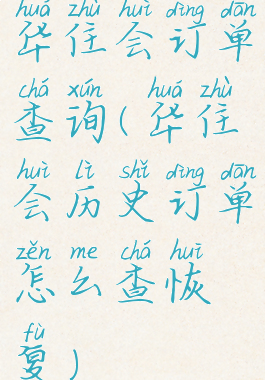 huá zhù huì dìng dān
华住会订单
chá xún huá zhù
查询(华住
huì lì shǐ dìng dān
会历史订单
zěn me chá huī
怎么查恢
fù
复)